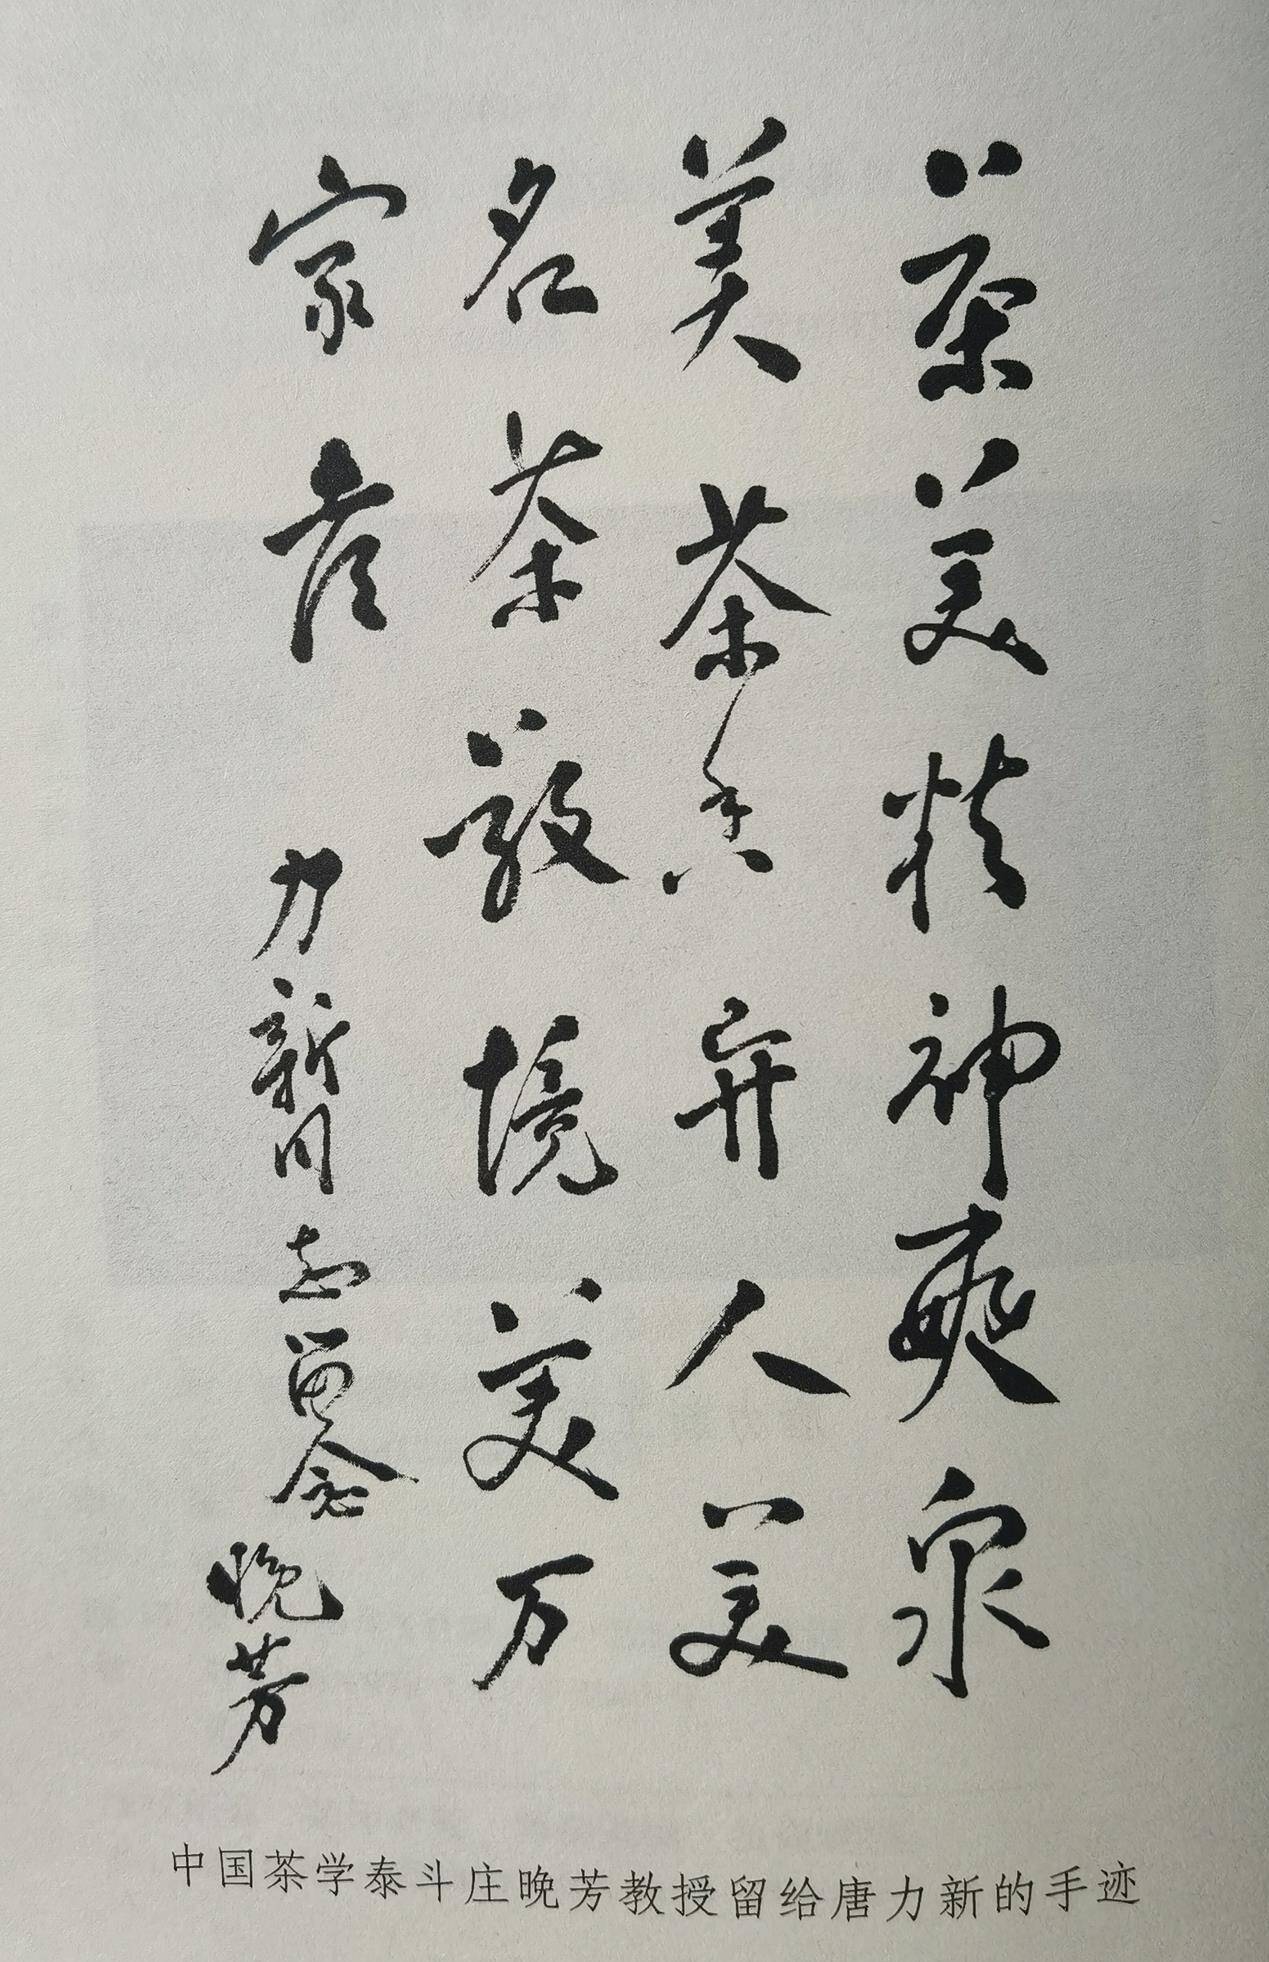 葉美精神爽泉
美茶香异人美
名茶敬境美万
家 力新同志留念 晚芳
中国茶学泰斗庄晚芳教授留给唐力新的手迹